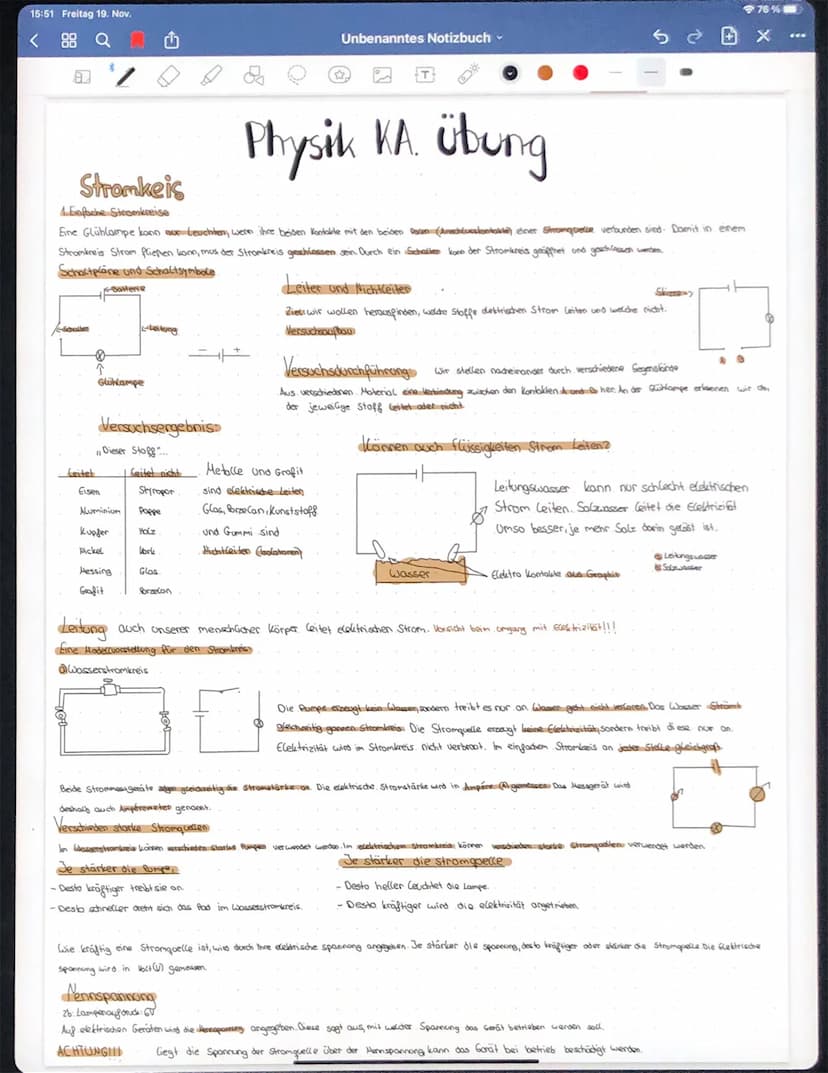 15:51 Freitag 19. Nov.
76 %
Unbenanntes Notizbuch
Physik KA. Übung
Stromkeis
1. Einfache Stromkreise
Eine Glühlampe kann nur Leuchten, wenn ihre beiden Kontakte mit den beiden Polen (Anschlusskontakte) einer Stromquelle verbunden sind. Damit in einem
Stromkreis Strom fließen kann, mus der Stromkreis geschlossen sein. Durch ein Schalter kann der Stromkreis geöffnet und geschlossen werden.
Schaltpläne und Schaltsymbole
Batterie
Schalter
Leitung
Glühlampe
- +
Leiter und Nichtleiter
Ziel: wir wollen herausfinden, welche Stoffe elektrischen Strom Leiten und welche nicht.
Versuchsaufbau
A B
Versuchsdurchführung Wir stellen nacheinander durch verschiedene Gegenstände
Aus verschiedenen Material eine Verbindung zwischen den Kontakten A und B her. An der Glühlampe erkennen wir ob
der jeweilige Stoff Leitet oder nicht.
Versuchsergebnis:
„Dieser Stoff"...
Leitet Leitet nicht
Eisen Styropor
Aluminium Pappe
Kupfer Holz
Nickel Kork
Messing Glas
Grafit Porzelan
Metalle und Grafit
sind elektrische Leiter
Glas, Porzelan, Kunststoff
und Gummi sind
Nichtleiter (Isolatoren)
Können auch flüssigkeiten Strom Leiten?
Leitungswasser kann nur schlecht elektrischen
Strom Leiten. Salzwasser Leitet die Elektrizität
Umso besser, je mehr Salz darin gelöst ist.
Leitungswasser
Salzwasser
Wasser
Elektro Kontakte aus Graphit
Leitung auch unserer menschlicher Körper Leitet elektrischen Strom. Vorsicht beim umgang mit Elektrizität!!!
Eine Modellvorstellung für den Stromkreis
a) Wasserstromkreis
Die Pumpe erzeugt kein Wasser, sondern treibt es nur an Wasser geht nicht verloren. Das Wasser Strömt
gleichzeitig ganzen Stromkreis. Die Stromquelle erzeugt keine Elektrizität, sondern treibt diese nur an.
Elektrizität wird im Stromkreis nicht verbraut. In einfachem Stromkreis an jeder Stelle gleichgroß.
Beide Strommessgeräte gleichzeitig die Stromstärke an. Die elektrische Stromstärke wird in Ampére (A) gemessen Das Messgerät wird
deshalb auch Ampéremeter genannt.
Verschieden starke Stromquellen
In Wasserstromkreis können verschieden starke Pumpen verwendet werden. In elektrischen Stromkreis können verschieden starke Stromquellen verwendet werden
Je stärker die Pumpe:
- Desto kräftiger treibt sie an.
- Desto schneller dreht sich das Rad im Wasserstromkreis.
Je stärker die stromquelle
- Desto heller Leuchtet die Lampe.
- Desto kräftiger wird die elektrizität angetrieben.
Wie kräftig eine Stromquelle ist, wird durch Ihre elektrische spannung angegeben. Je stärker die spannung, desto kräftiger oder stärker die Stromquelle. Die Elektrische
spannung wird in Volt (V) gemessen.
Nennspannung
zb. Lampenaufdruck: 6V
Auf elektrischen Geräten wird die Nennspannung angegeben. Diese sagt aus, mit welcher Spannung das Gerät betrieben werden soll.
ACHTUNG!!! Liegt die Spannung der Stromquelle über der Nennspannung kann das Gerät bei betrieb beschädigt werden.